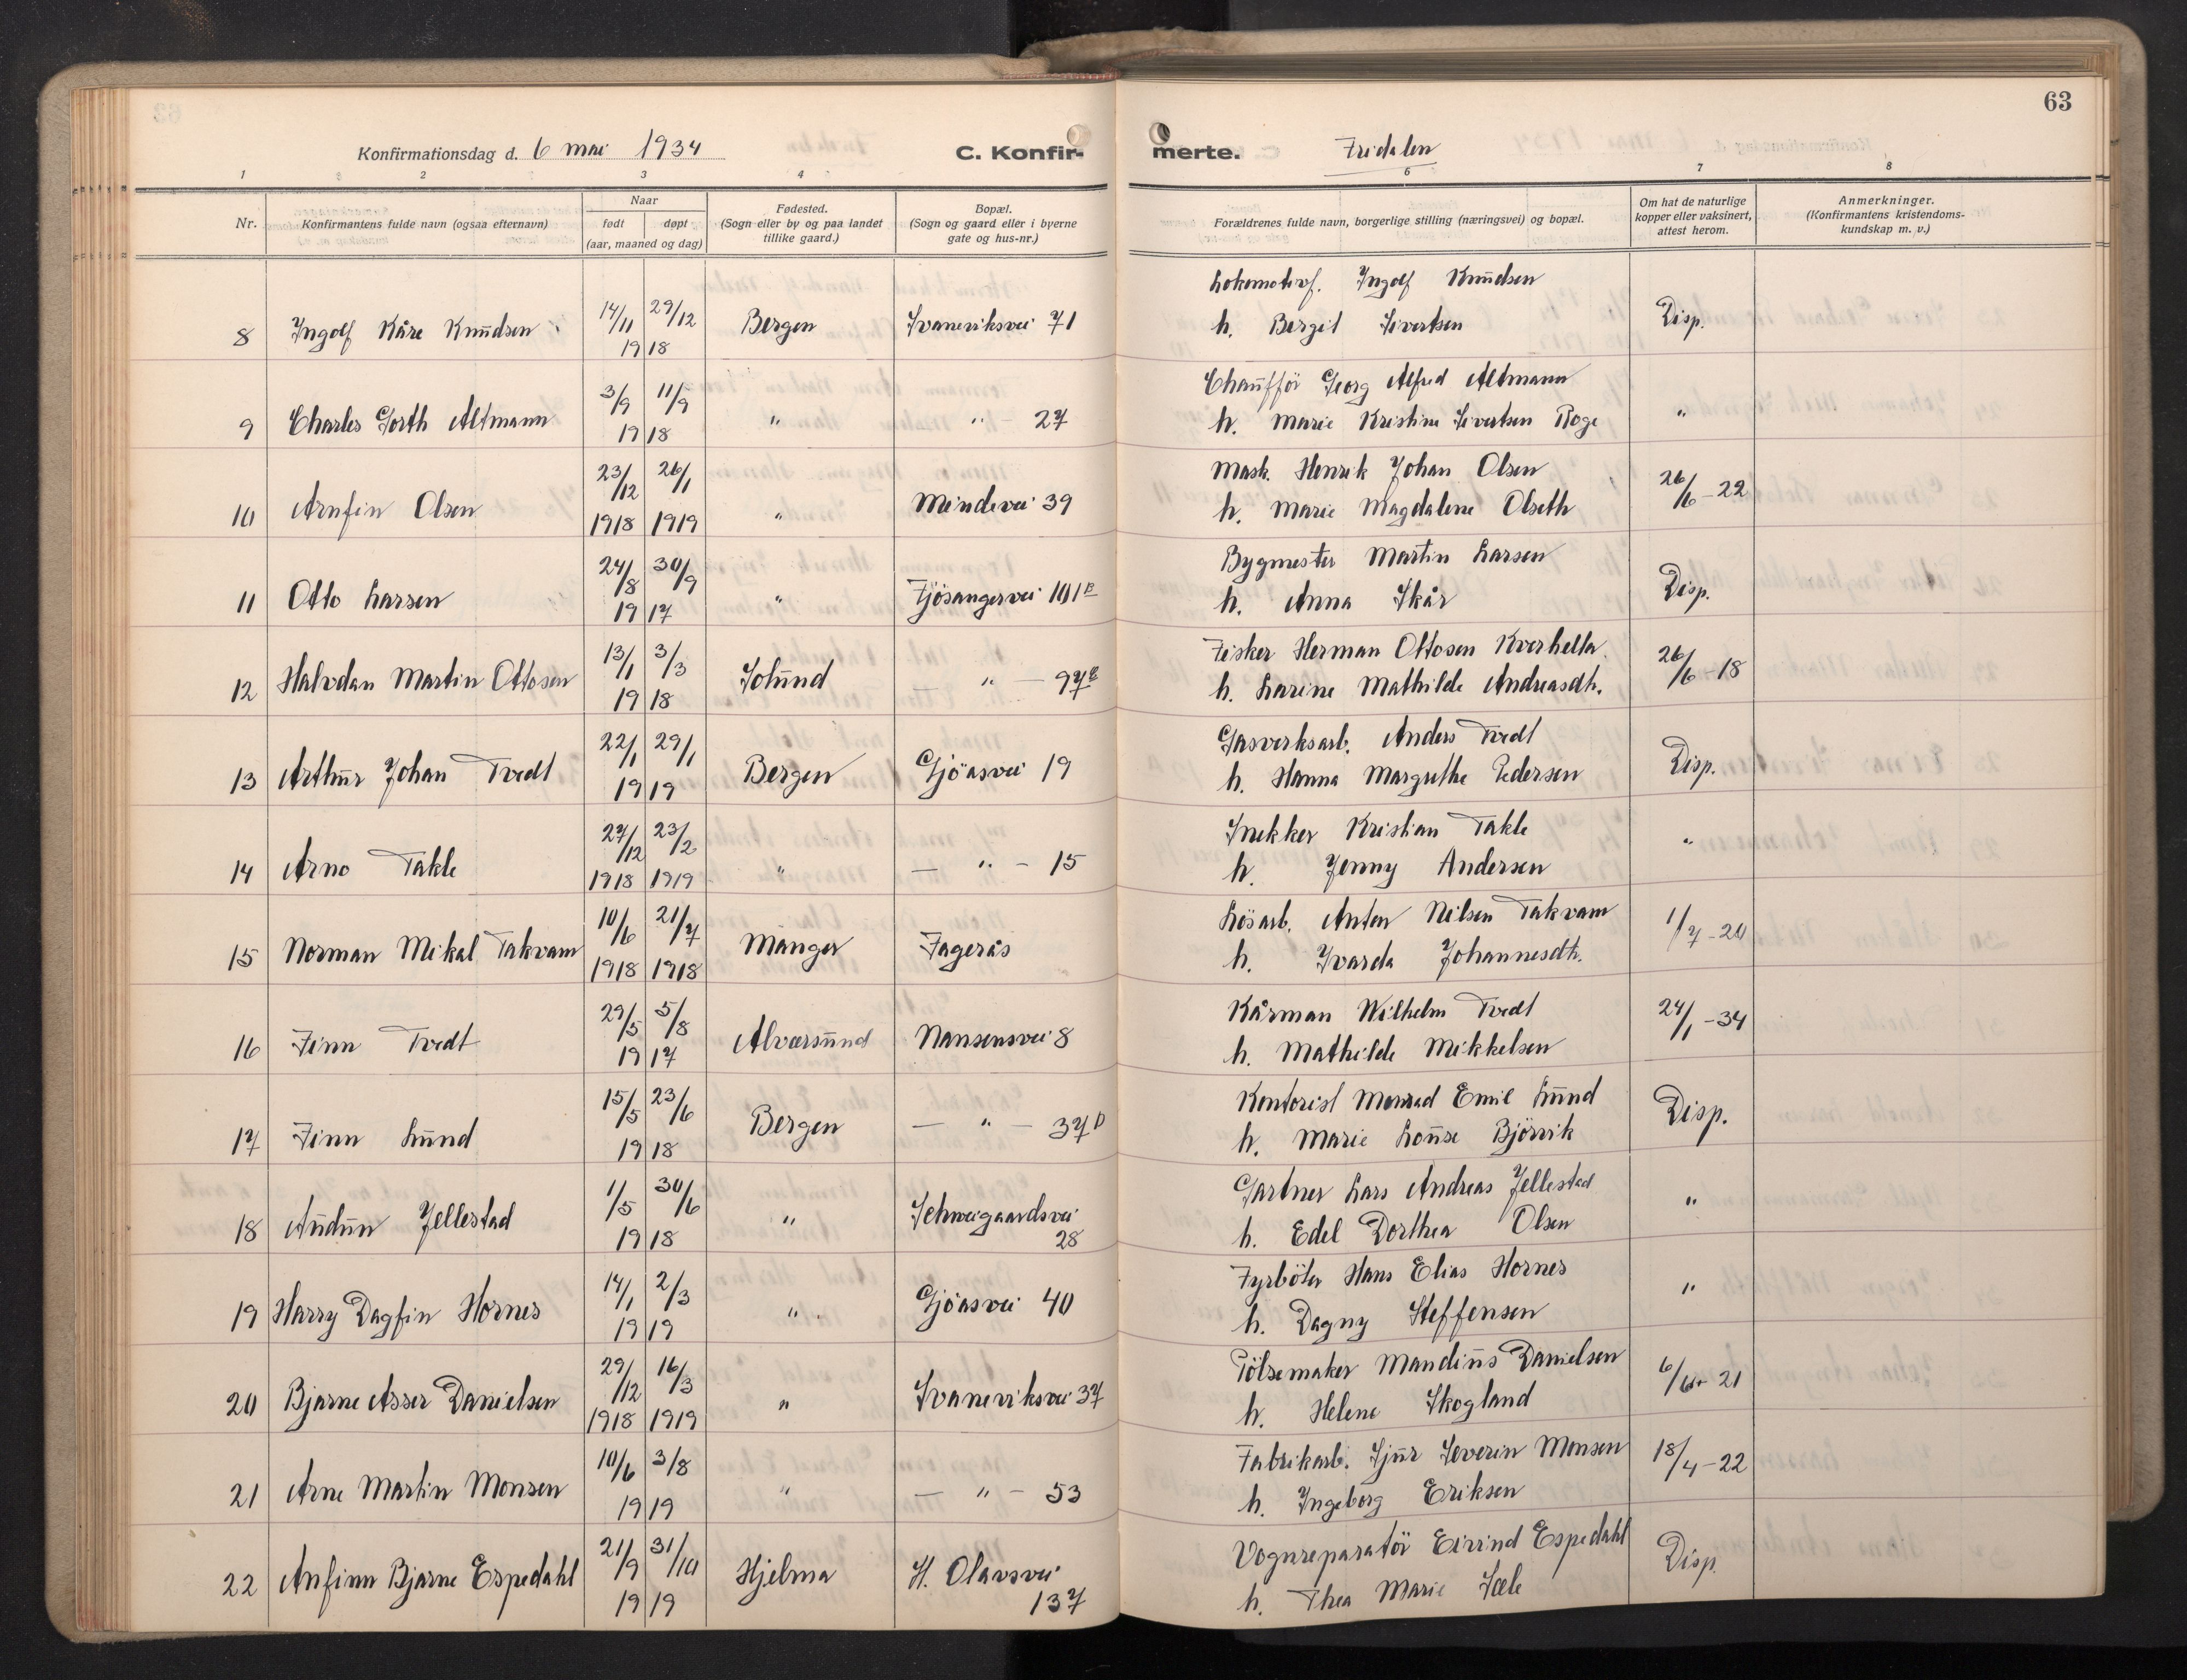 63
Konfirmationsdag d. 6 mai 1934
C. Konfir-
merte.
Fridalen
1 2 3 4 5 6 7 8
Nr.
Konfirmantens fulde navn (ogsaa efternavn)
Naar
født døpt
(aar, maaned og dag)
Fødested.
(Sogn eller by og paa landet
tillike gaard.)
Bopæl.
(Sogn og gaard eller i byerne
gate og hus-nr.)
Forældrenes fulde navn, borgerlige stilling (næringsvei) og bopæl.
Om hat de naturlige
kopper eller vaksinert,
attest herom.
Anmerkninger.
(Konfirmantens kristendoms-
kundskap m. v.)
Lokomotivf. Ingolf Knudsen
8 Ingolf Kåre Knudsen 14/11 29/12 1918 Bergen Svaneviksvei 71
h. Bergit Sivertsen Disp.
Chaufför Georg Alfred Altmann
9 Charles Gorth Altmann 3/9 11/9 1918 " " - 27
h. Marie Kristine Sivertsen Roge "
Mask. Henrik Johan Olsen
10 Arnfin Olsen 23/12 1918 26/1 1919 " Mindevei 39
h. Marie Magdalene Olseth 26/6-22
Bygmester Martin Larsen
11 Otto Larsen 24/8 30/9 1917 " Fjösangervei 101B
h. Anna Skår Disp.
Fisker Herman Ottosen Kverhella
12 Halvdan Martin Ottosen 13/1 3/3 1918 Solund - " - 97B
h. Larine Mathilde Andreasdtr. 26/6-18
Gasverksarb. Anders Tvedt
13 Arthur Johan Tvedt 22/1 29/1 1919 Bergen Gjöasvei 19
h. Hanna Margrethe Pedersen Disp.
Snekker Kristian Takle
14 Arno Takle 27/12 1918 23/2 1919 " - " - 15
h. Jenny Andersen "
Lösarb. Anton Nilsen Takvam
15 Norman Mikal Takvam 10/6 1918 21/7 1918 Manger Fagerås
h. Ivarda Johannesdtr. 1/7-20
Kårman Wilhelm Tvedt
16 Finn Tvedt 29/5 5/8 1917 Alversund Nansensvei 8
h. Mathilde Mikkelsen 24/1-34
Kontorist Monrad Emil Lund
17 Finn Lund 15/5 23/6 1918 Bergen - " - 37D
h. Marie Louise Björvik Disp.
Gartner Lars Andreas Jellestad
18 Audun Jellestad 1/5 30/6 1918 " Schweigaardsvei 28
h. Edel Dorthea Olsen "
Fyrböter Hans Elias Hornes
19 Harry Dagfin Hornes 14/1 2/3 1919 " Gjöasvei 40
h. Dagny Steffensen "
Pölsemaker Mandius Danielsen
20 Bjarne Asser Danielsen 29/12 1918 16/3 1919 " Svaneviksvei 37
h. Helene Skogland 21
Fabrikarb. Sjur Severin Monsen
21 Arne Martin Monsen 10/6 3/8 1919 " - " - 53
h. Ingeborg Eriksen 18/4-22
Vognreparatör Eivind Espedahl
22 Anfinn Bjarne Espedahl 21/9 31/10 1919 Hjelma H. Olavsvei 137
h. Thea Marie Sæle Disp.